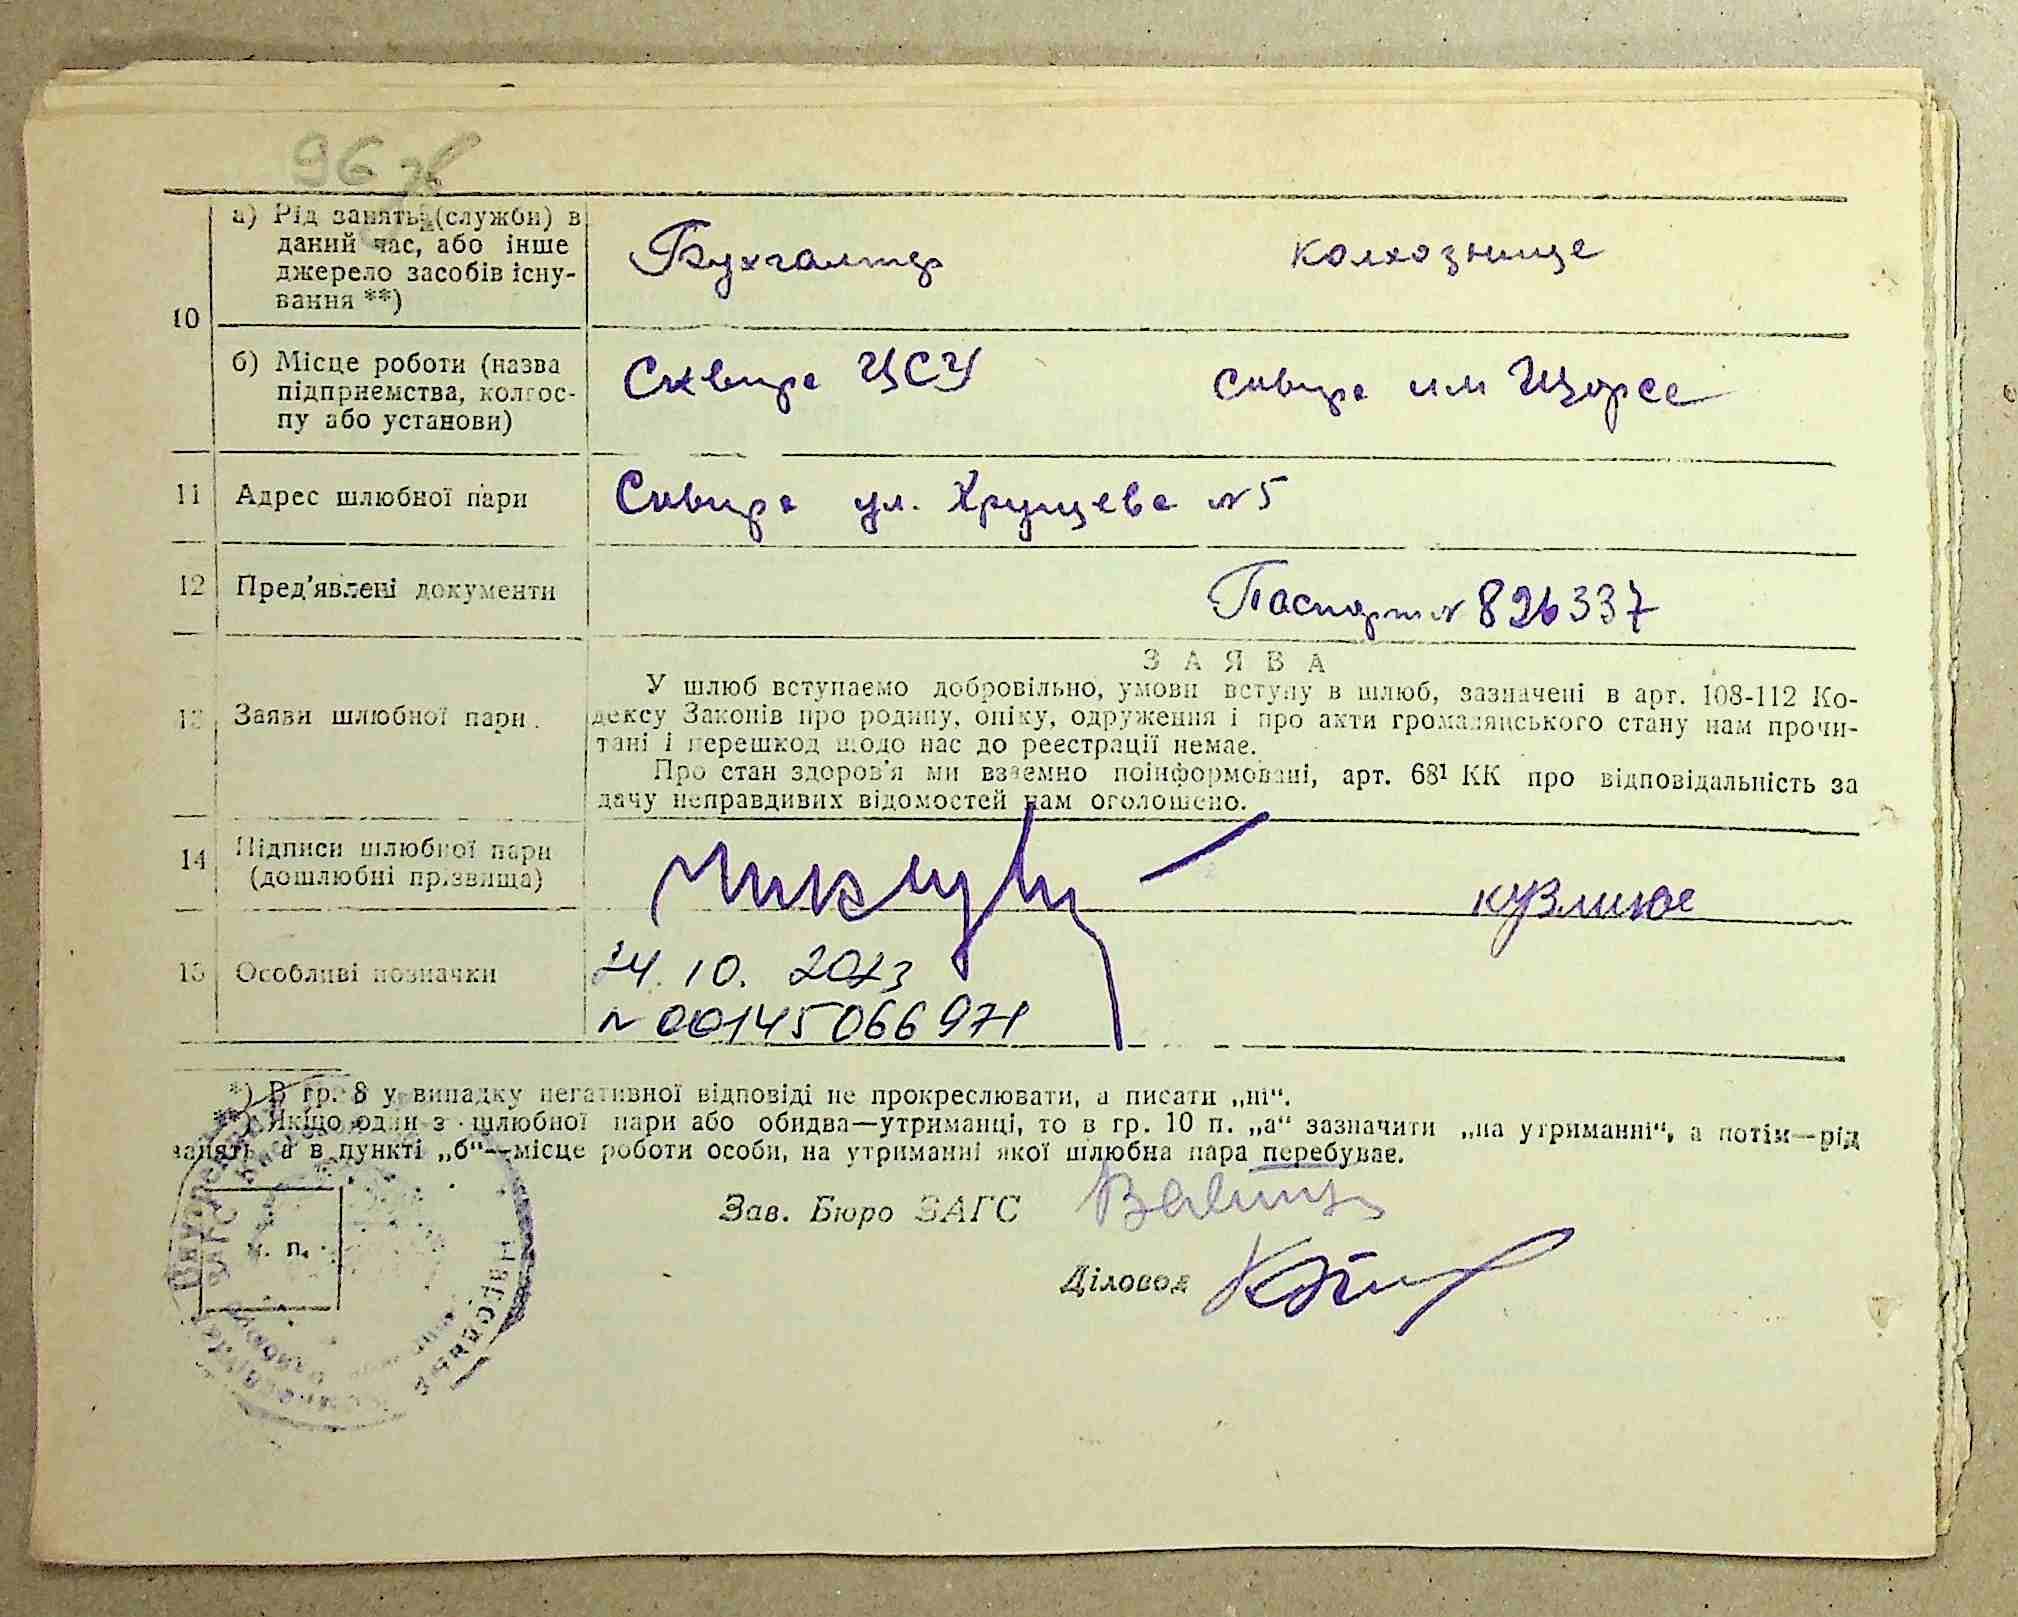 96 зв
10
а) Рід занять (служби) в
даний час, або інше
джерело засобів існу-
вання **)
Бухгалтер
колхознице
б) Місце роботи (назва
підприемства, колгос-
пу або установи)
Сквира ЦСУ
Сквира им Щорса
11 Адрес шлюбної пари
Сквира ул. Хрущева №5
12 Пред'явлені документи
Паспорт № 826337
13 Заяви шлюбної пари.
ЗАЯВА
У шлюб вступаємо добровільно, умови вступу в шлюб, зазначені в арт. 108-112 Ко-
дексу Законів про родину, опіку, одруження і про акти громадянського стану нам прочи-
тані і перешкод щодо нас до реестрації немає.
Про стан здоров'я ми взаемно поінформовані, арт. 68¹ КК про відповідальність за
дачу неправдивих відомостей нам оголошено.
14 Підписи шлюбної пари
(дошлюбні прізвища)
15 Особливі позначки
24.10.2023
№ 00145066971
*) В гр. 8 у випадку негативної відповіді не прокреслювати, а писати „ні“.
**) Якщо один з шлюбної пари або обидва—утриманці, то в гр. 10 п. „а“ зазначити „на утриманні“, а потім—рід
занять, а в пункті „б“—місце роботи особи, на утриманні якої шлюбна пара перебуває.
Зав. Бюро ЗАГС
м. п.
Діловод